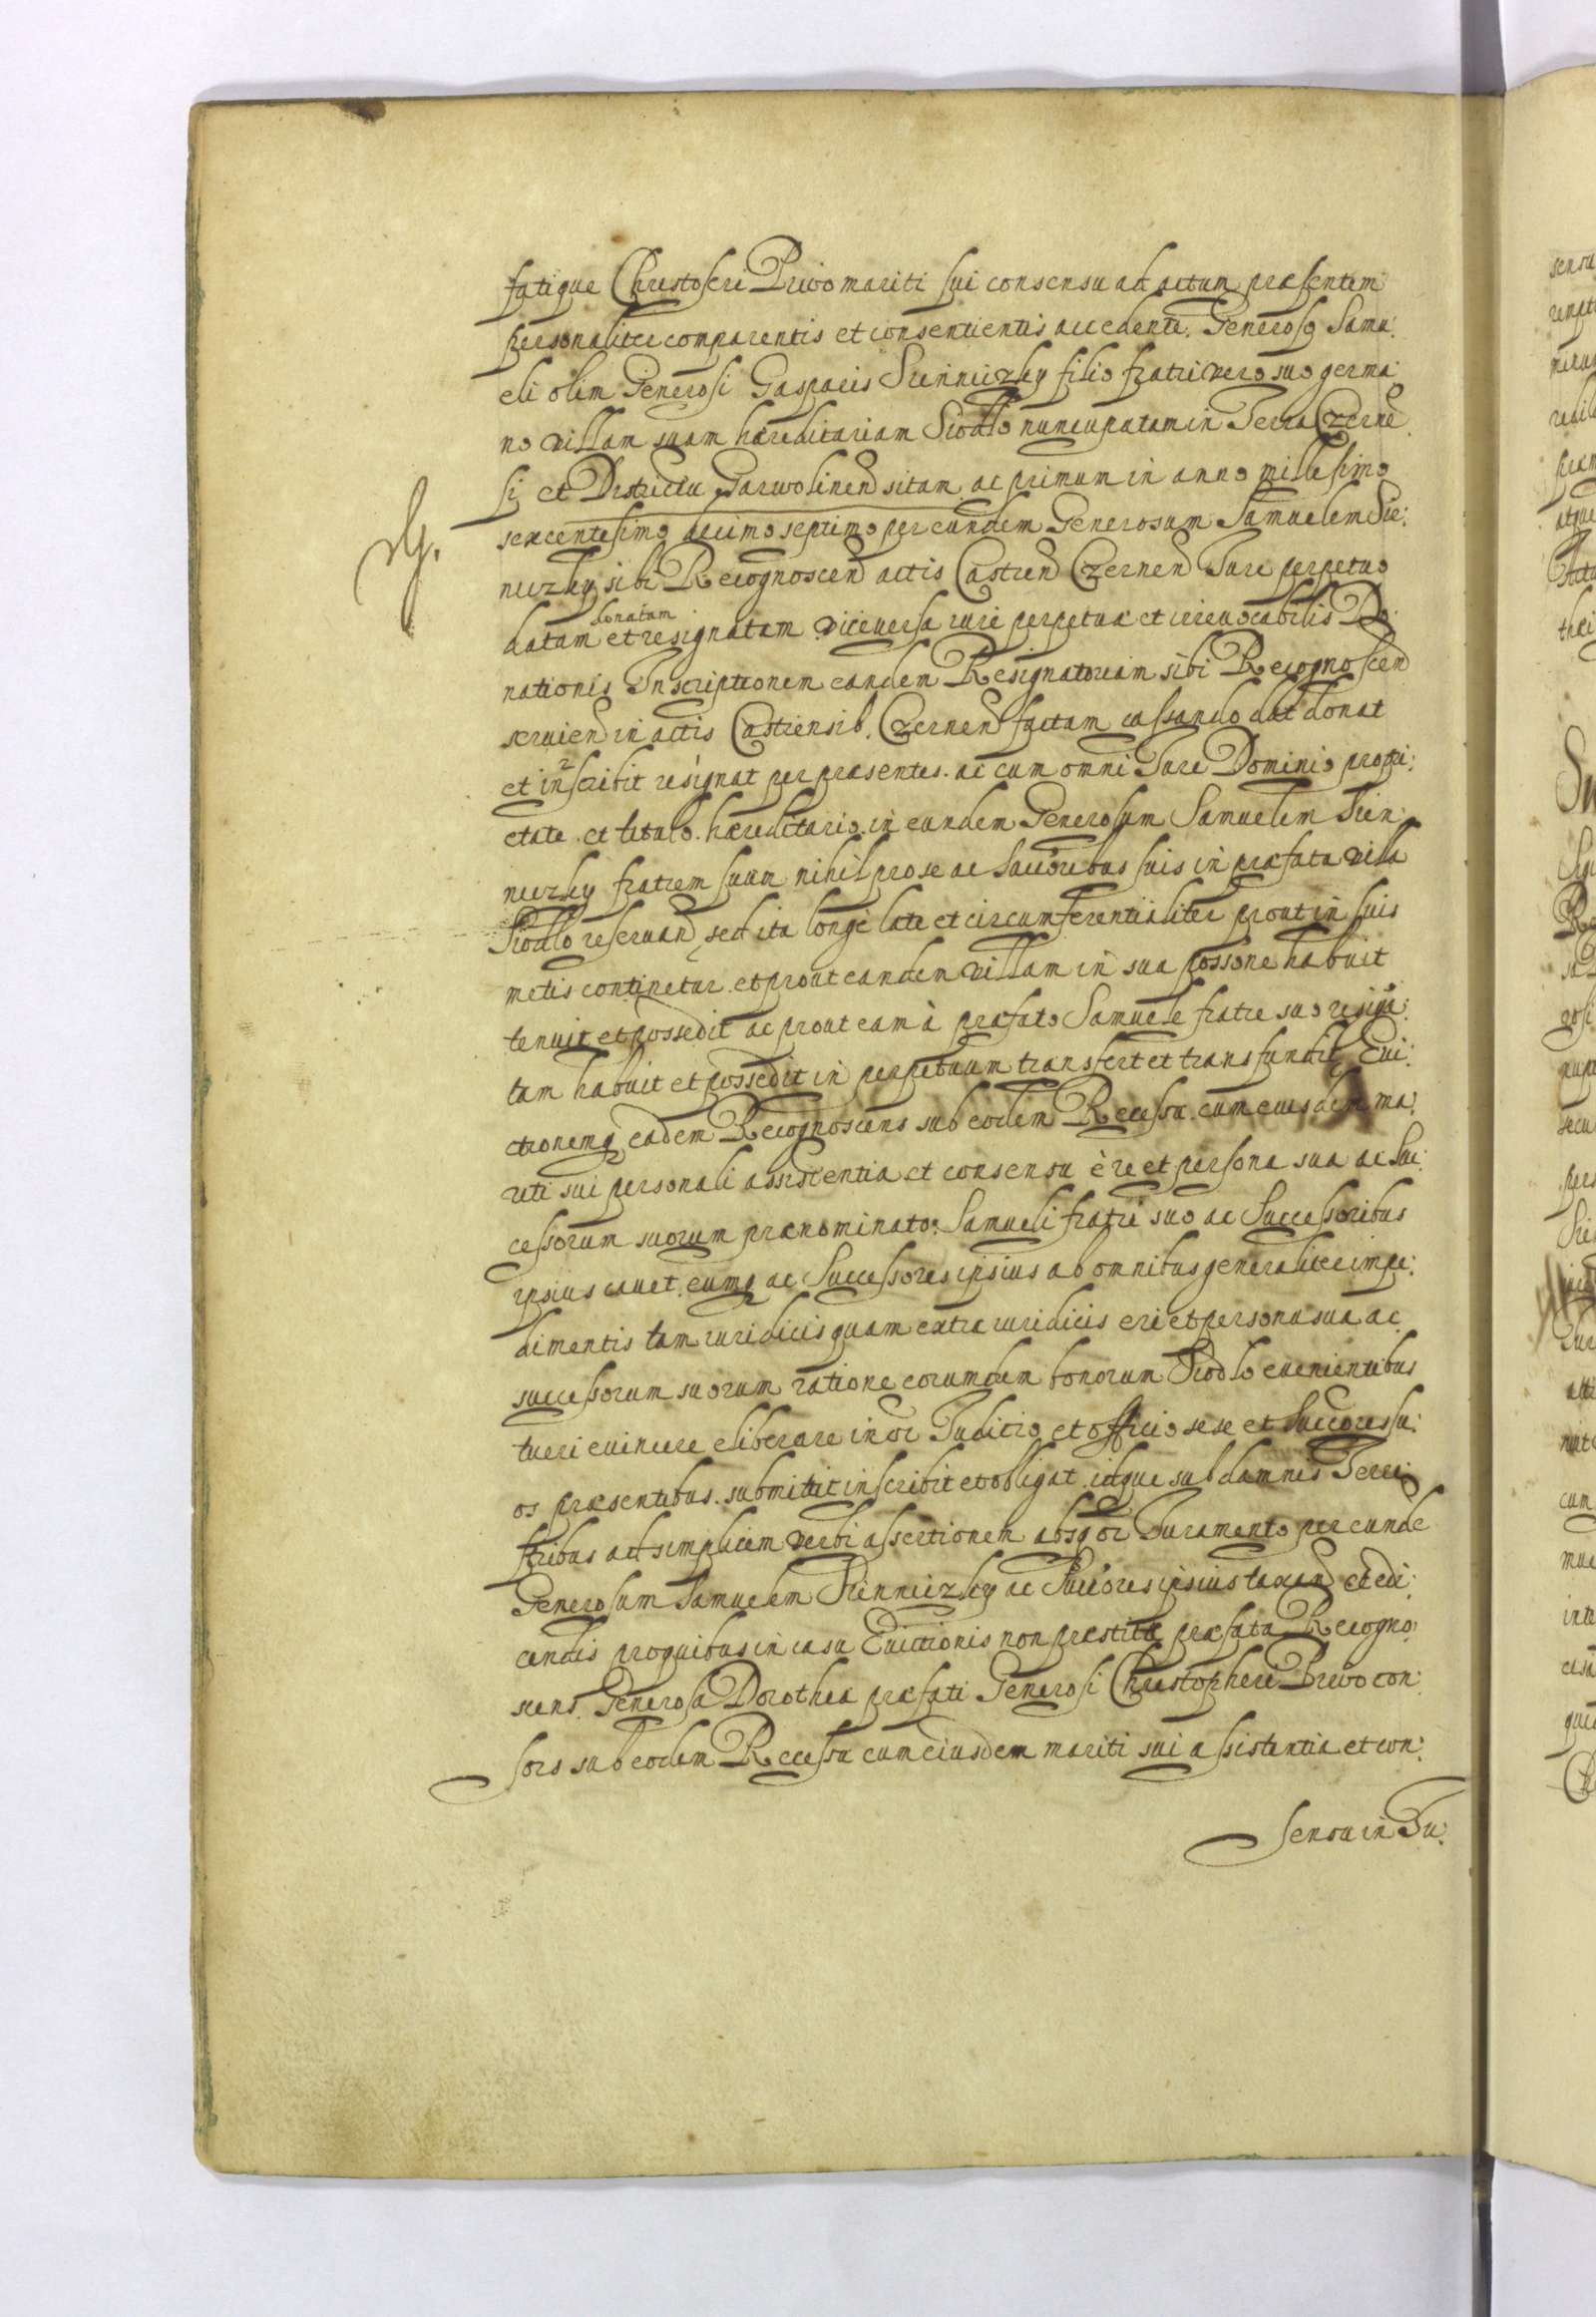 fatique Christoferi Priwo mariti sui consensu ad actum præsentem
personaliter comparentis et consentientis accedente. Generoso Samu:
eli olim Generosi Gasparis Siennizky filio fratri vero suo germa
no villam suam hæreditariam Siodlo nuncupatam in Terra Czerne
si et Districtu Garwolinen sitam ac primum in anno millesimo
sexcentesimo decimo septimo per eundem Generosum Samuelem Sie:
nizky sibi Recognoscen actis Castren Czernen Jure perpetuo
donatam
datam et resignatam viceversa iure perpetuæ et irreuocabilis Do
nationis Inscriptionem eandem Resignatoriam sibi Recognoscen
seruien in actis Castrensib. Czernen factam cassando dat donat
et inscribit resignat per præsentes. ac cum omni Jure Dominio propri:
etate et titulo hæreditario in eundem Generosum Samuelem Sien
nizky fratrem suum nihil pro se ac Succoribus suis in præfata villa
Siodlo reseruan, sed ita longè late et circumferentialiter prout in suis
metis continetur et prout eandem villam in sua possone habuit
tenuit et possedit ac prout eam à præfato Samuele fratre suo resigna:
tam habuit et possedit in perpetuum transfert et transfundit Eui:
ctionemq eadem Recognoscens sub eodem Recessu cum eiusdem ma:
riti sui personali assistentia et consensu è re et persona sua ac Suc:
cessorum suorum prænominato: Samueli fratri suo ac Successoribus
ipsius cauet. eumq ac Successores ipsius ab omnibus generaliter impe:
dimentis tam iuridicis quam extra iuridicis è re et persona sua ac
successorum suorum ratione eorumdem bonorum Siodlo euenientibus
tueri euincere eliberare in oi Juditio et officio sese et Succores su:
os præsentibus submittit inscribit et obligat idque sub damnis Terre:
stribus ad simplicem verbi assertionem absq oi Juramento per eunde
Generosum Samuelem Siennizky ac Succores ipsius taxan et edi:
cendis pro quibus in casu Euictionis non præstitæ præfata Recogno:
scens Generosa Dorothea præfati Generosi Christopheri Priwo con:
sors sub eodem Recessu cum eiusdem mariti sui assistentia et con:
sensu in Ju: